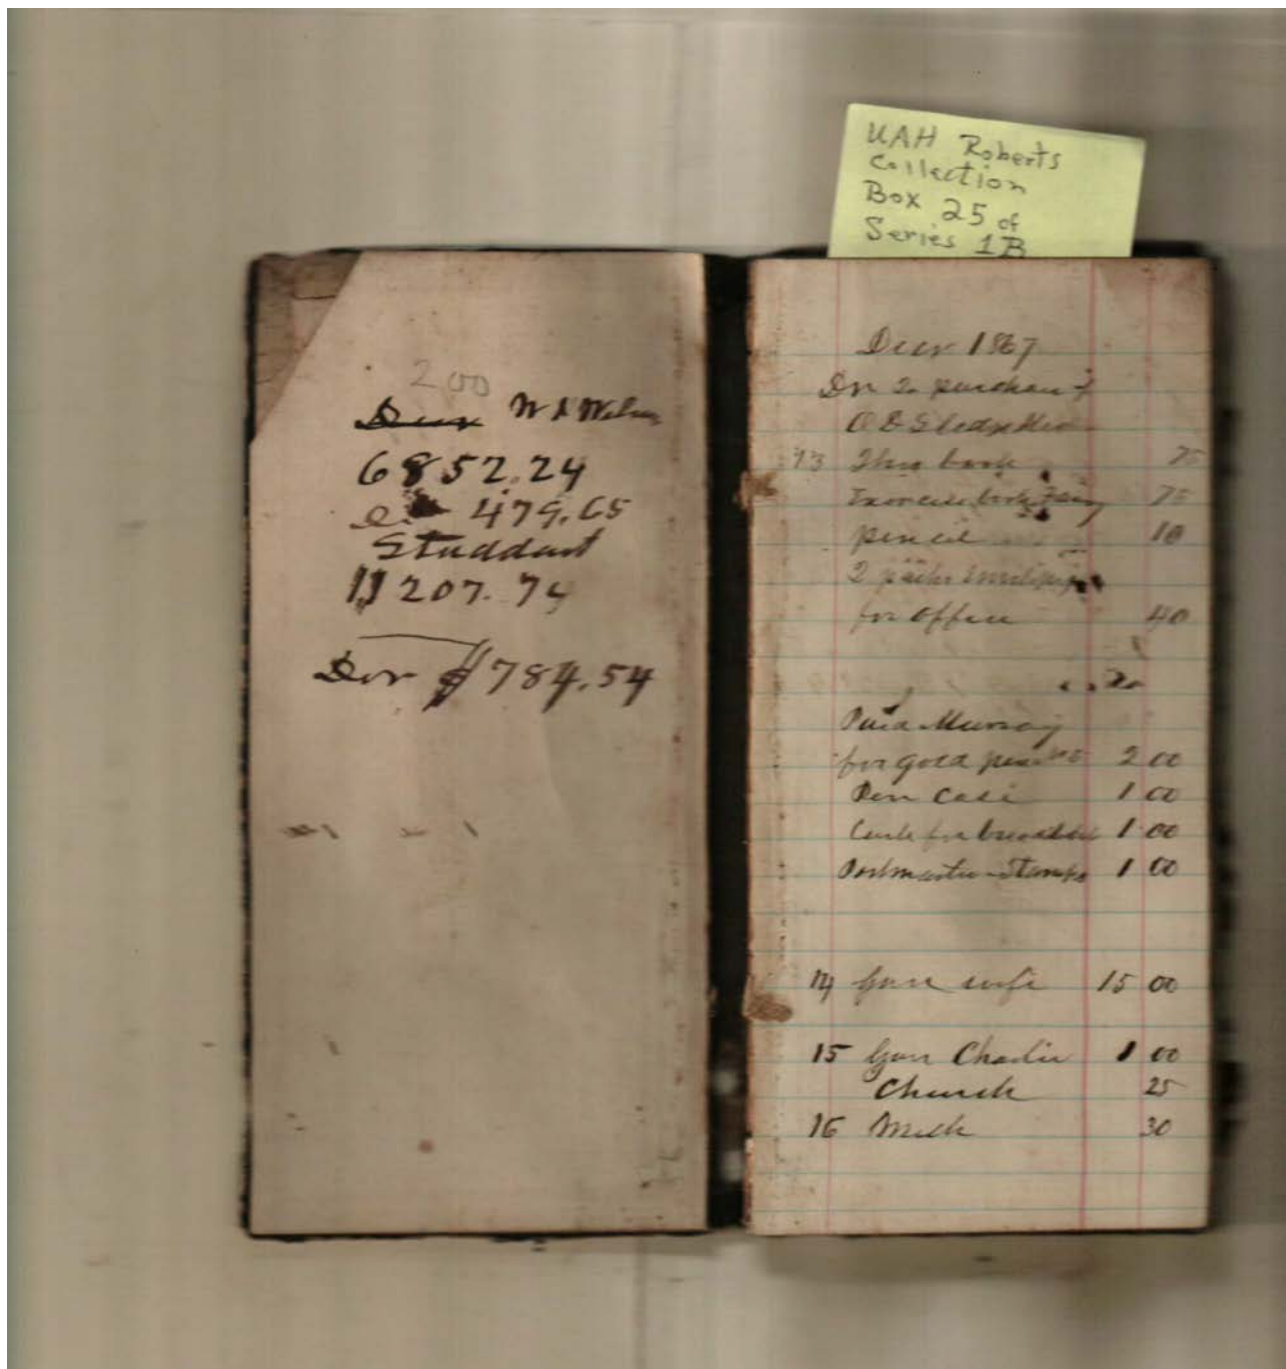 UAH Roberts
Collection
Box 25 of
Series 1B
200
6852.24
479.65
Studdart
11207.74
$784.54
Decr 1867
Dr to purchase of
13 This book 75
Exercise book 75
pencil 10
2 packs
for office 40
Paid Murray
for gold pen 2 00
Pen Case 1 00
for 1 00
Postmaster Stamps 1 00
14 Gave wife 15 00
15 Gave Charlie 1 00
Church 25
16 Milk 30